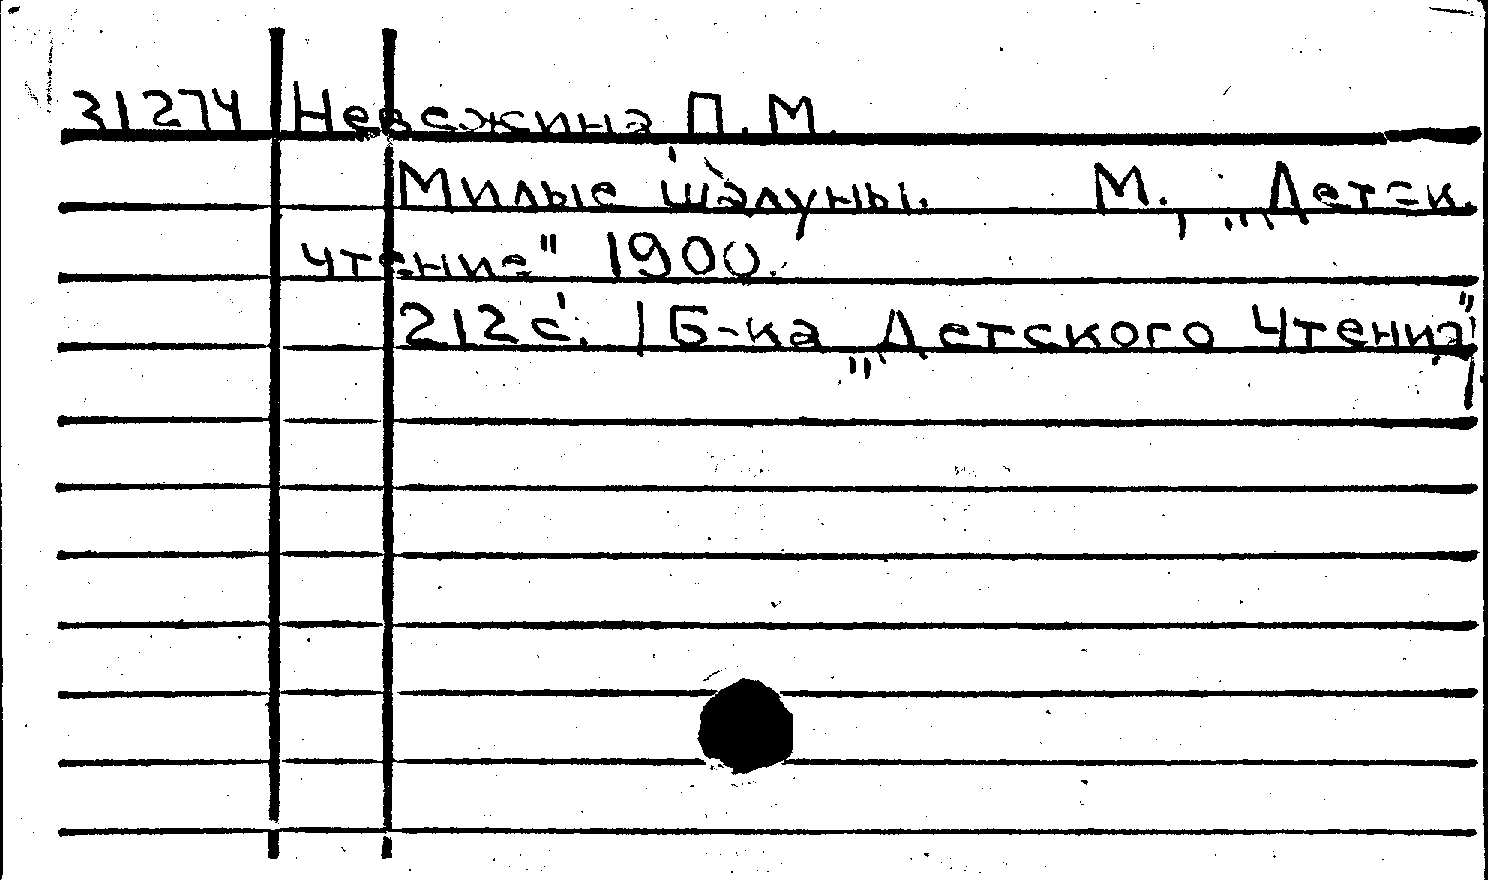 31274 Невежина П.М.
Милые шалуны. М., „Детск.
чтение" 1900.
212 с. /Б-ка „Детского Чтения"/